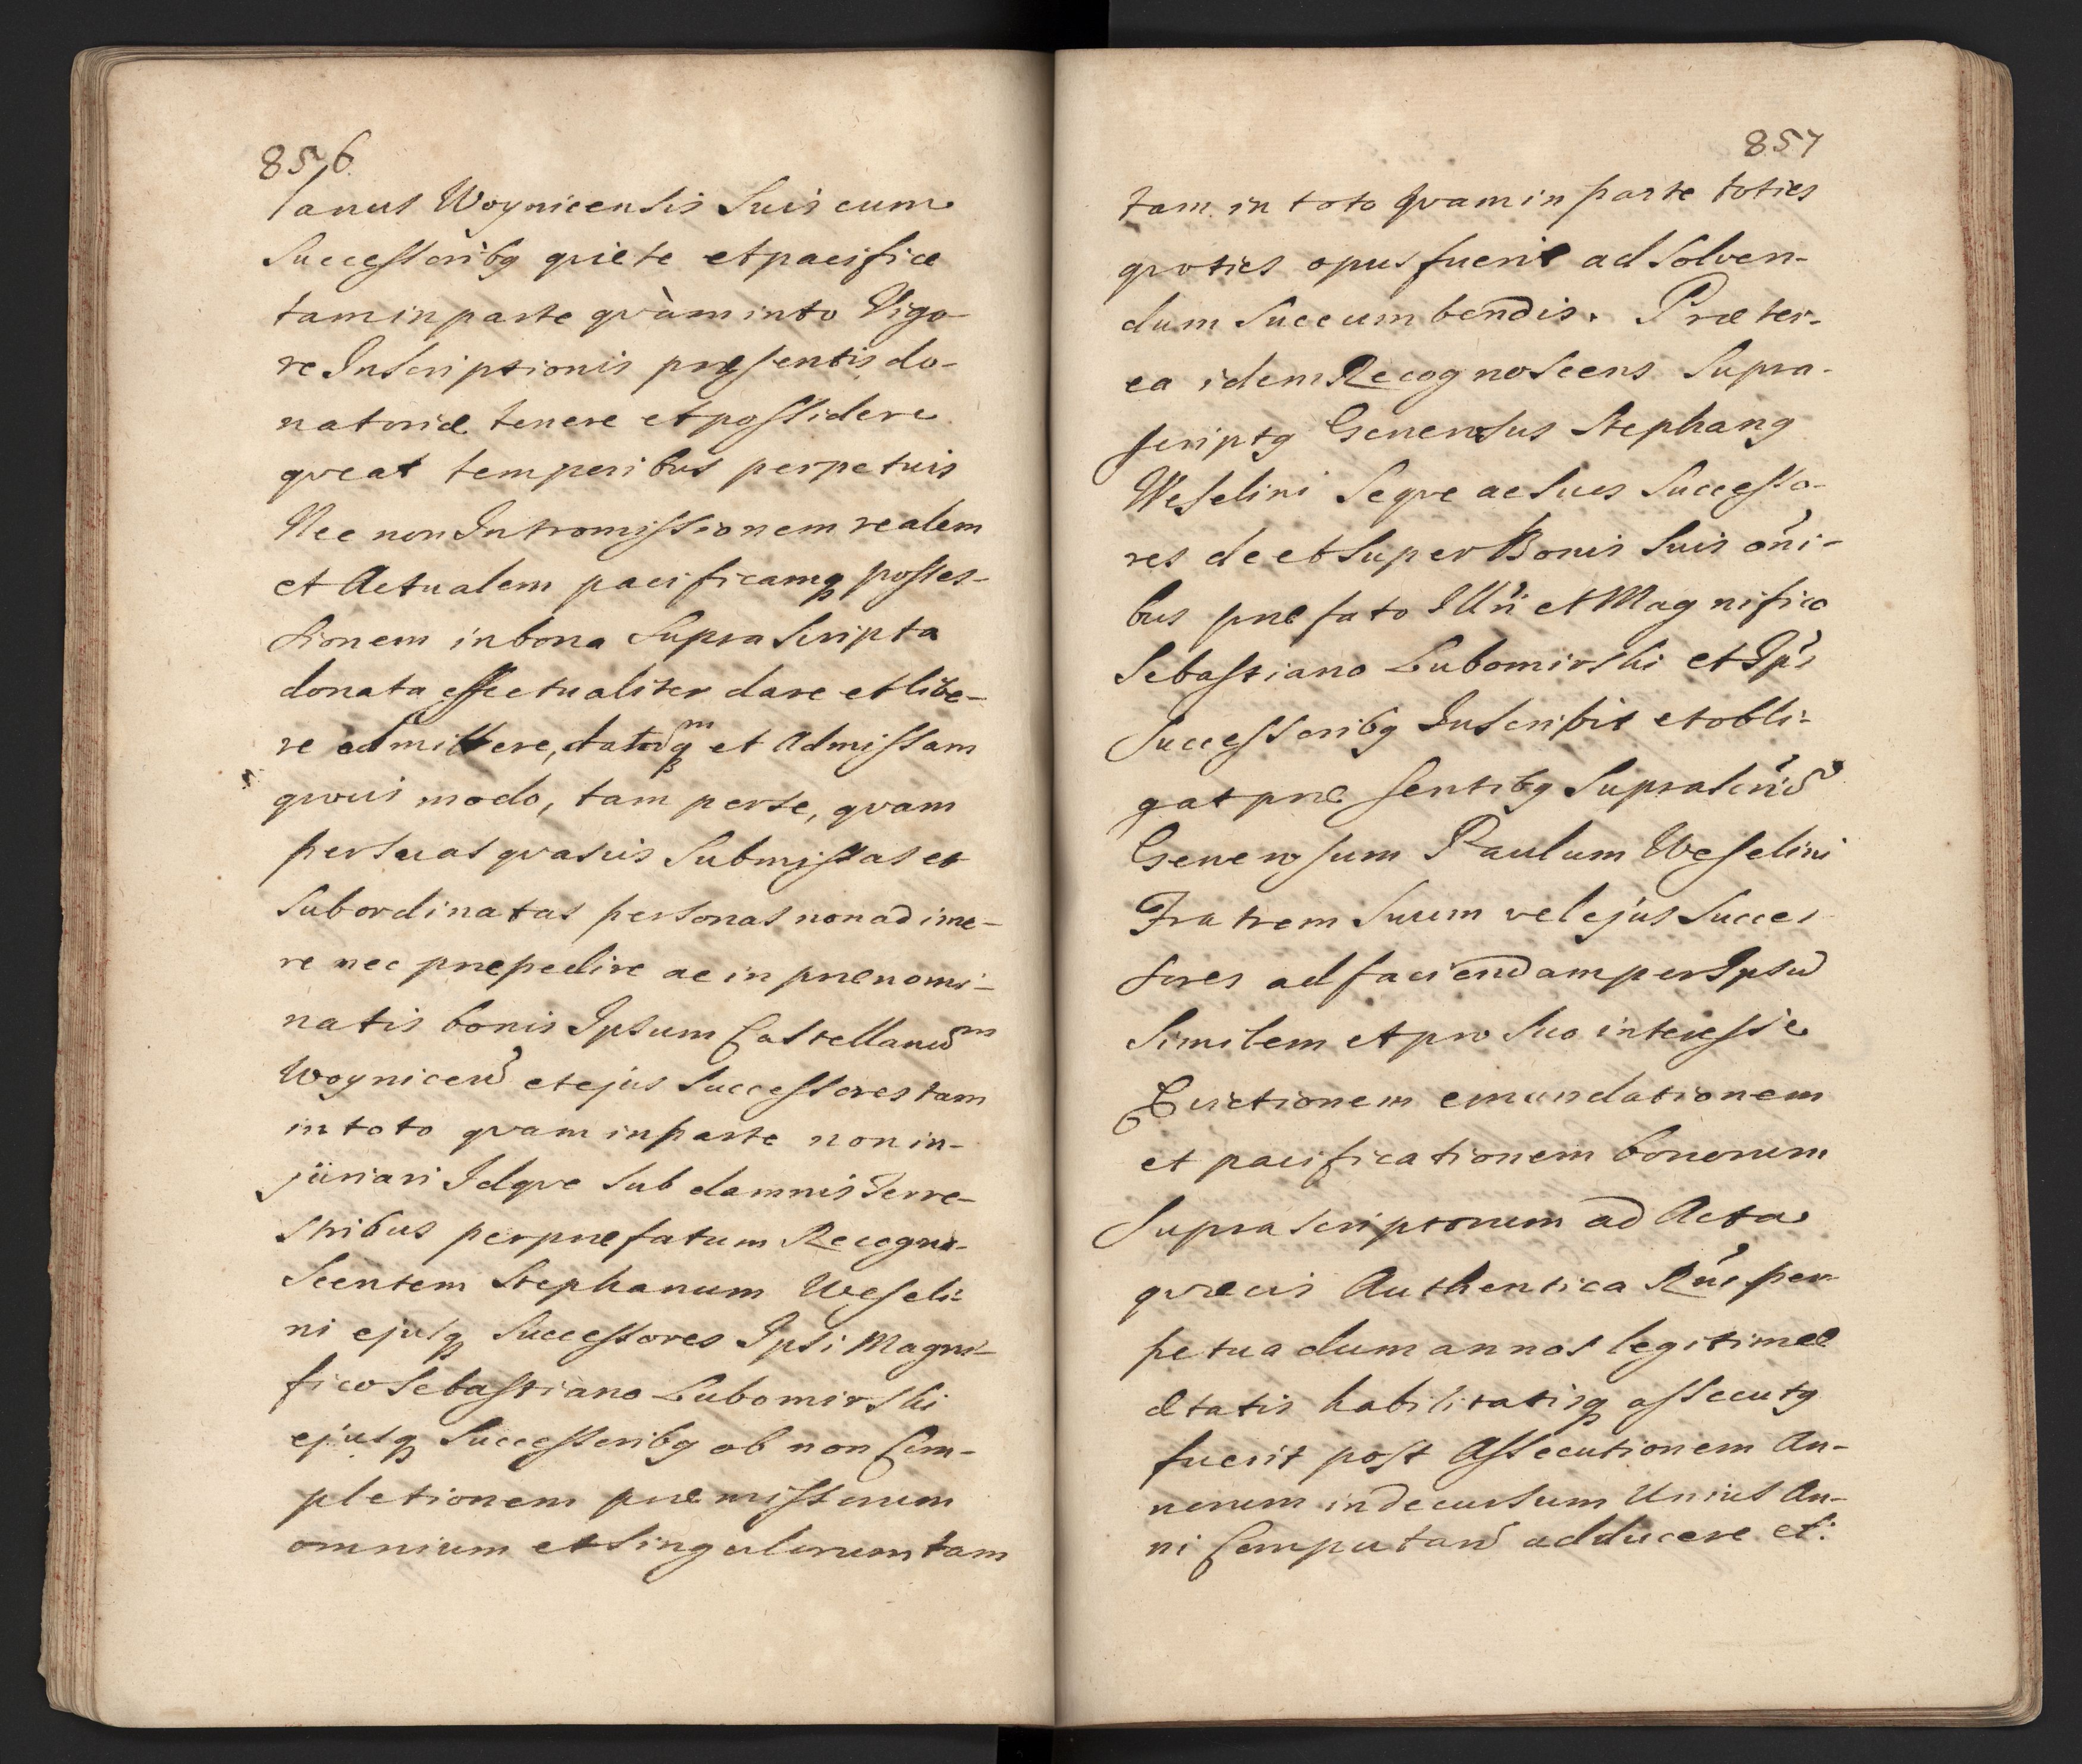 856
lanus Woynicensis Suis cum
Successoribq quiete et pacifice
tam in parte qvàm in to Vigo
re Inscriptionis præsentis do-
natoriæ tenere et possidere
qveat temporibus perpetuis
Nec non Intromissionem realem
et Actualem pacificamq posses-
sionem in bona Supra Scripta
donata effectualiter dare et libe-
re admittere, datamq et Admissam
qvovis modo, tam per se, qvam
per Suas qvasvis Submissas et
Subordinatas personas non adime-
re nec præpedire ac in prænomi-
natis bonis Ipsum Castellanum
Woynicen̄ et ejus Successores tam
in toto qvam in parte non in-
juriari Idqve Sub damnis Terre-
stribus per præfatum Recogno-
Scentem Stephanum Weseli-
ni ejusq Successores Ipsi Magni-
fico Sebastiano Lubomirski
ejusq Successoribq ob non Com-
pletionem præmissorum
omnium et Singulorum tam
857
tam in toto qvam in parte toties
qvoties opus fuerit ad Solven-
dum Succumbendis. Præter-
ea idem Recognoscens Supra-
scriptq Generosus Stephanq
Weselini Seqve ac Suos Successo-
res de et Super Bonis Suis oni-
bus præfato Illri et Magnifico
Sebastiano Lubomirski et Ip̄i
Successoribq Inscribit et obli-
gat præsentibq Suprascrm̄
Generosum Paulum Weselini
Fratrem Suum vel ejus Succes
sores ad faciendam per Ipsum̄
Similem et pro Suo interesse
Evictionem emundationem
et pacificationem bonorum
Supra Scriptorum ad Acta
qvævis Authentica Rn̄s per
petua dum annos legitimæ
ætatis habilitatisq assecutq
fuerit post Assecutionem An-
norum in decursum Unius An-
ni Computan̄ adducere et.